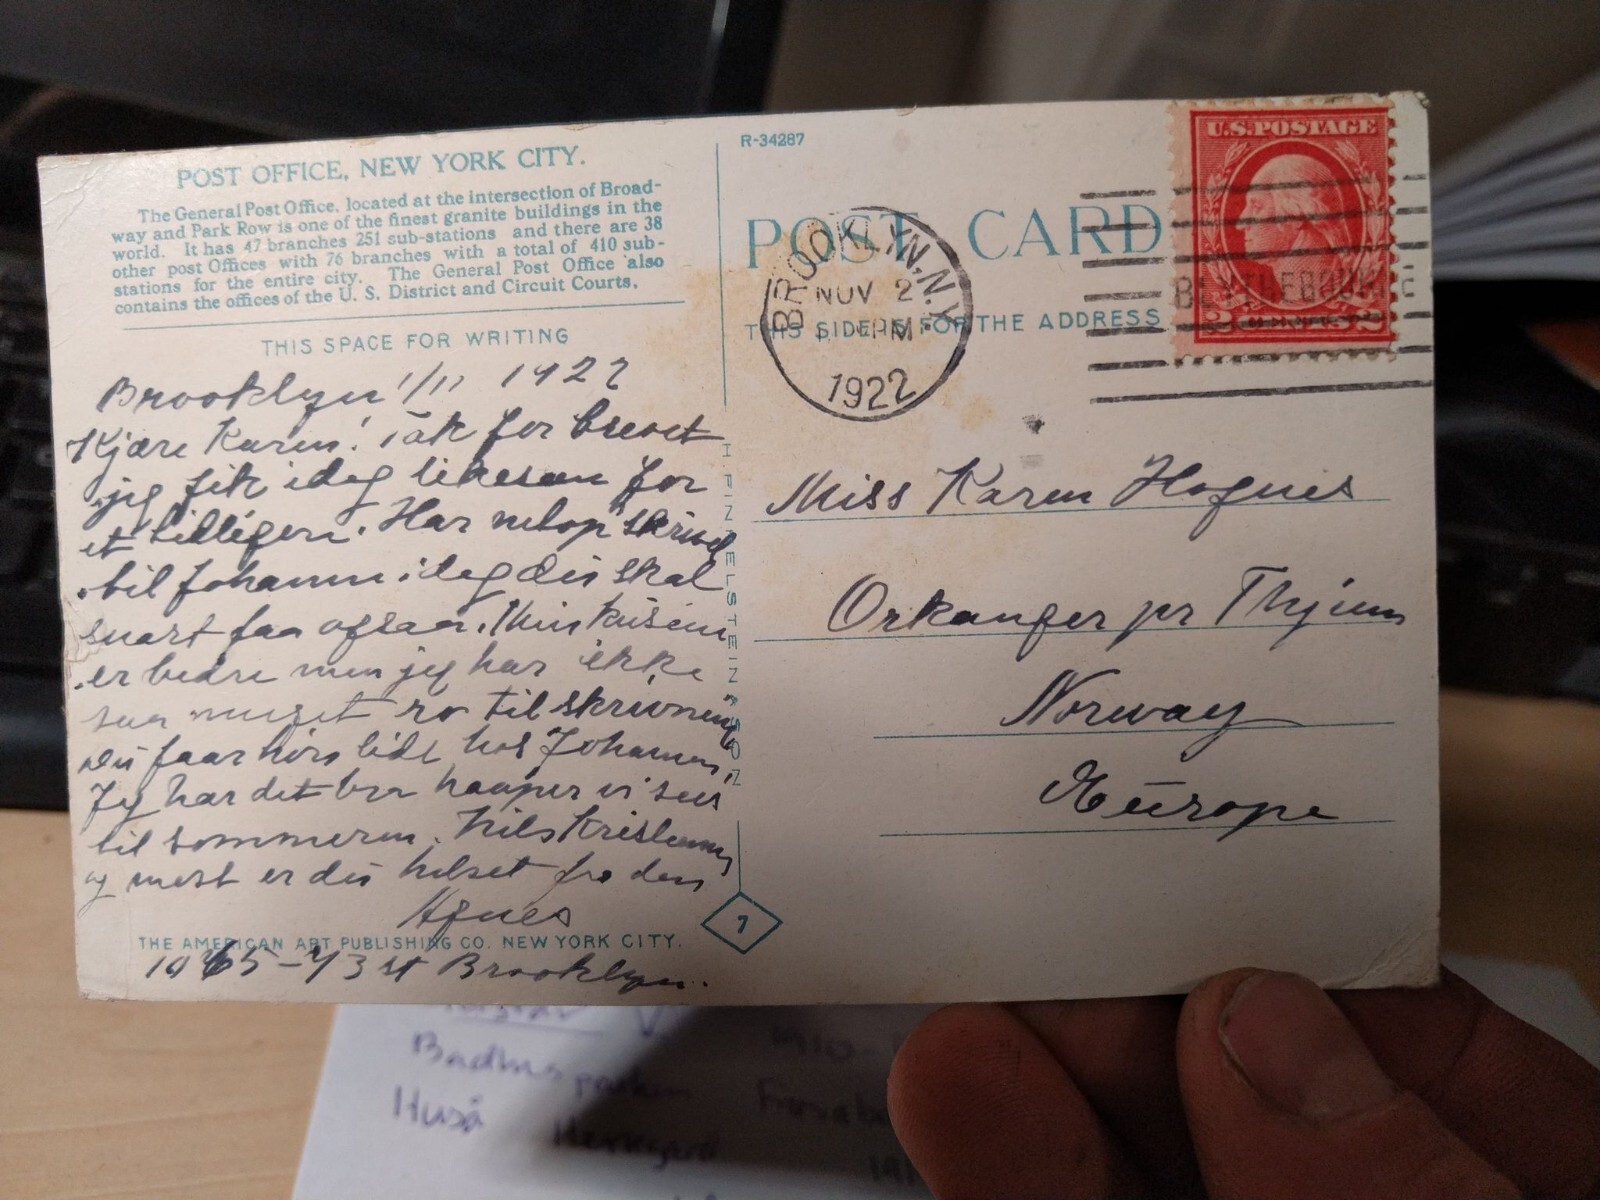 POST OFFICE, NEW YORK CITY.
The General Post Office, located at the intersection of Broad-
way and Park Row is one of the finest granite buildings in the
world. It has 47 branches 251 sub-stations and there are 38
other post Offices with 76 branches with a total of 410 sub-
stations for the entire city. The General Post Office also
contains the offices of the U. S. District and Circuit Courts.
THIS SPACE FOR WRITING
Brooklyn 1/11 1922
Kjære Karen! Tak for brevet
jeg fik idag likesaa for
et tidligere. Har netop skrivd
til Johanna idag du skal
snart faa ogsaa. Min kusine
er bedre men jeg har ikke
saa meget ro til skrivning
du faar høre lidt hos Johanna.
Jeg har det bra haaper vi sees
til sommeren. Nils Kristian
og mest er du hilset fra din
Agnes
THE AMERICAN ART PUBLISHING CO. NEW YORK CITY.
1065-73 st Brooklyn.
H FINKELSTEIN & SON
7
R-34287
POST CARD
THIS SIDE IS FOR THE ADDRESS
BROOKLYN, N.Y.
NOV 2
PM
1922
U.S. POSTAGE
2 CENTS 2
Miss Karen Hognes
Orkanger pr Thjem
Norway
Europe
Huså